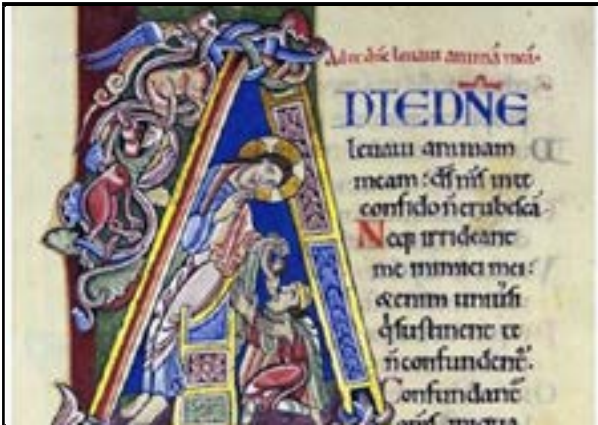 Ad te dñe leuaui animā meā.
AD TE DÑE
leuaui animam
meam: d̄s m̄s in te
confido ñ erubescā
Neq; irrideant
me inimici mei:
&enim uniūsi
q̄ sustinent te
ñ confundent̄.
Confundant̄
om̄s iniqua